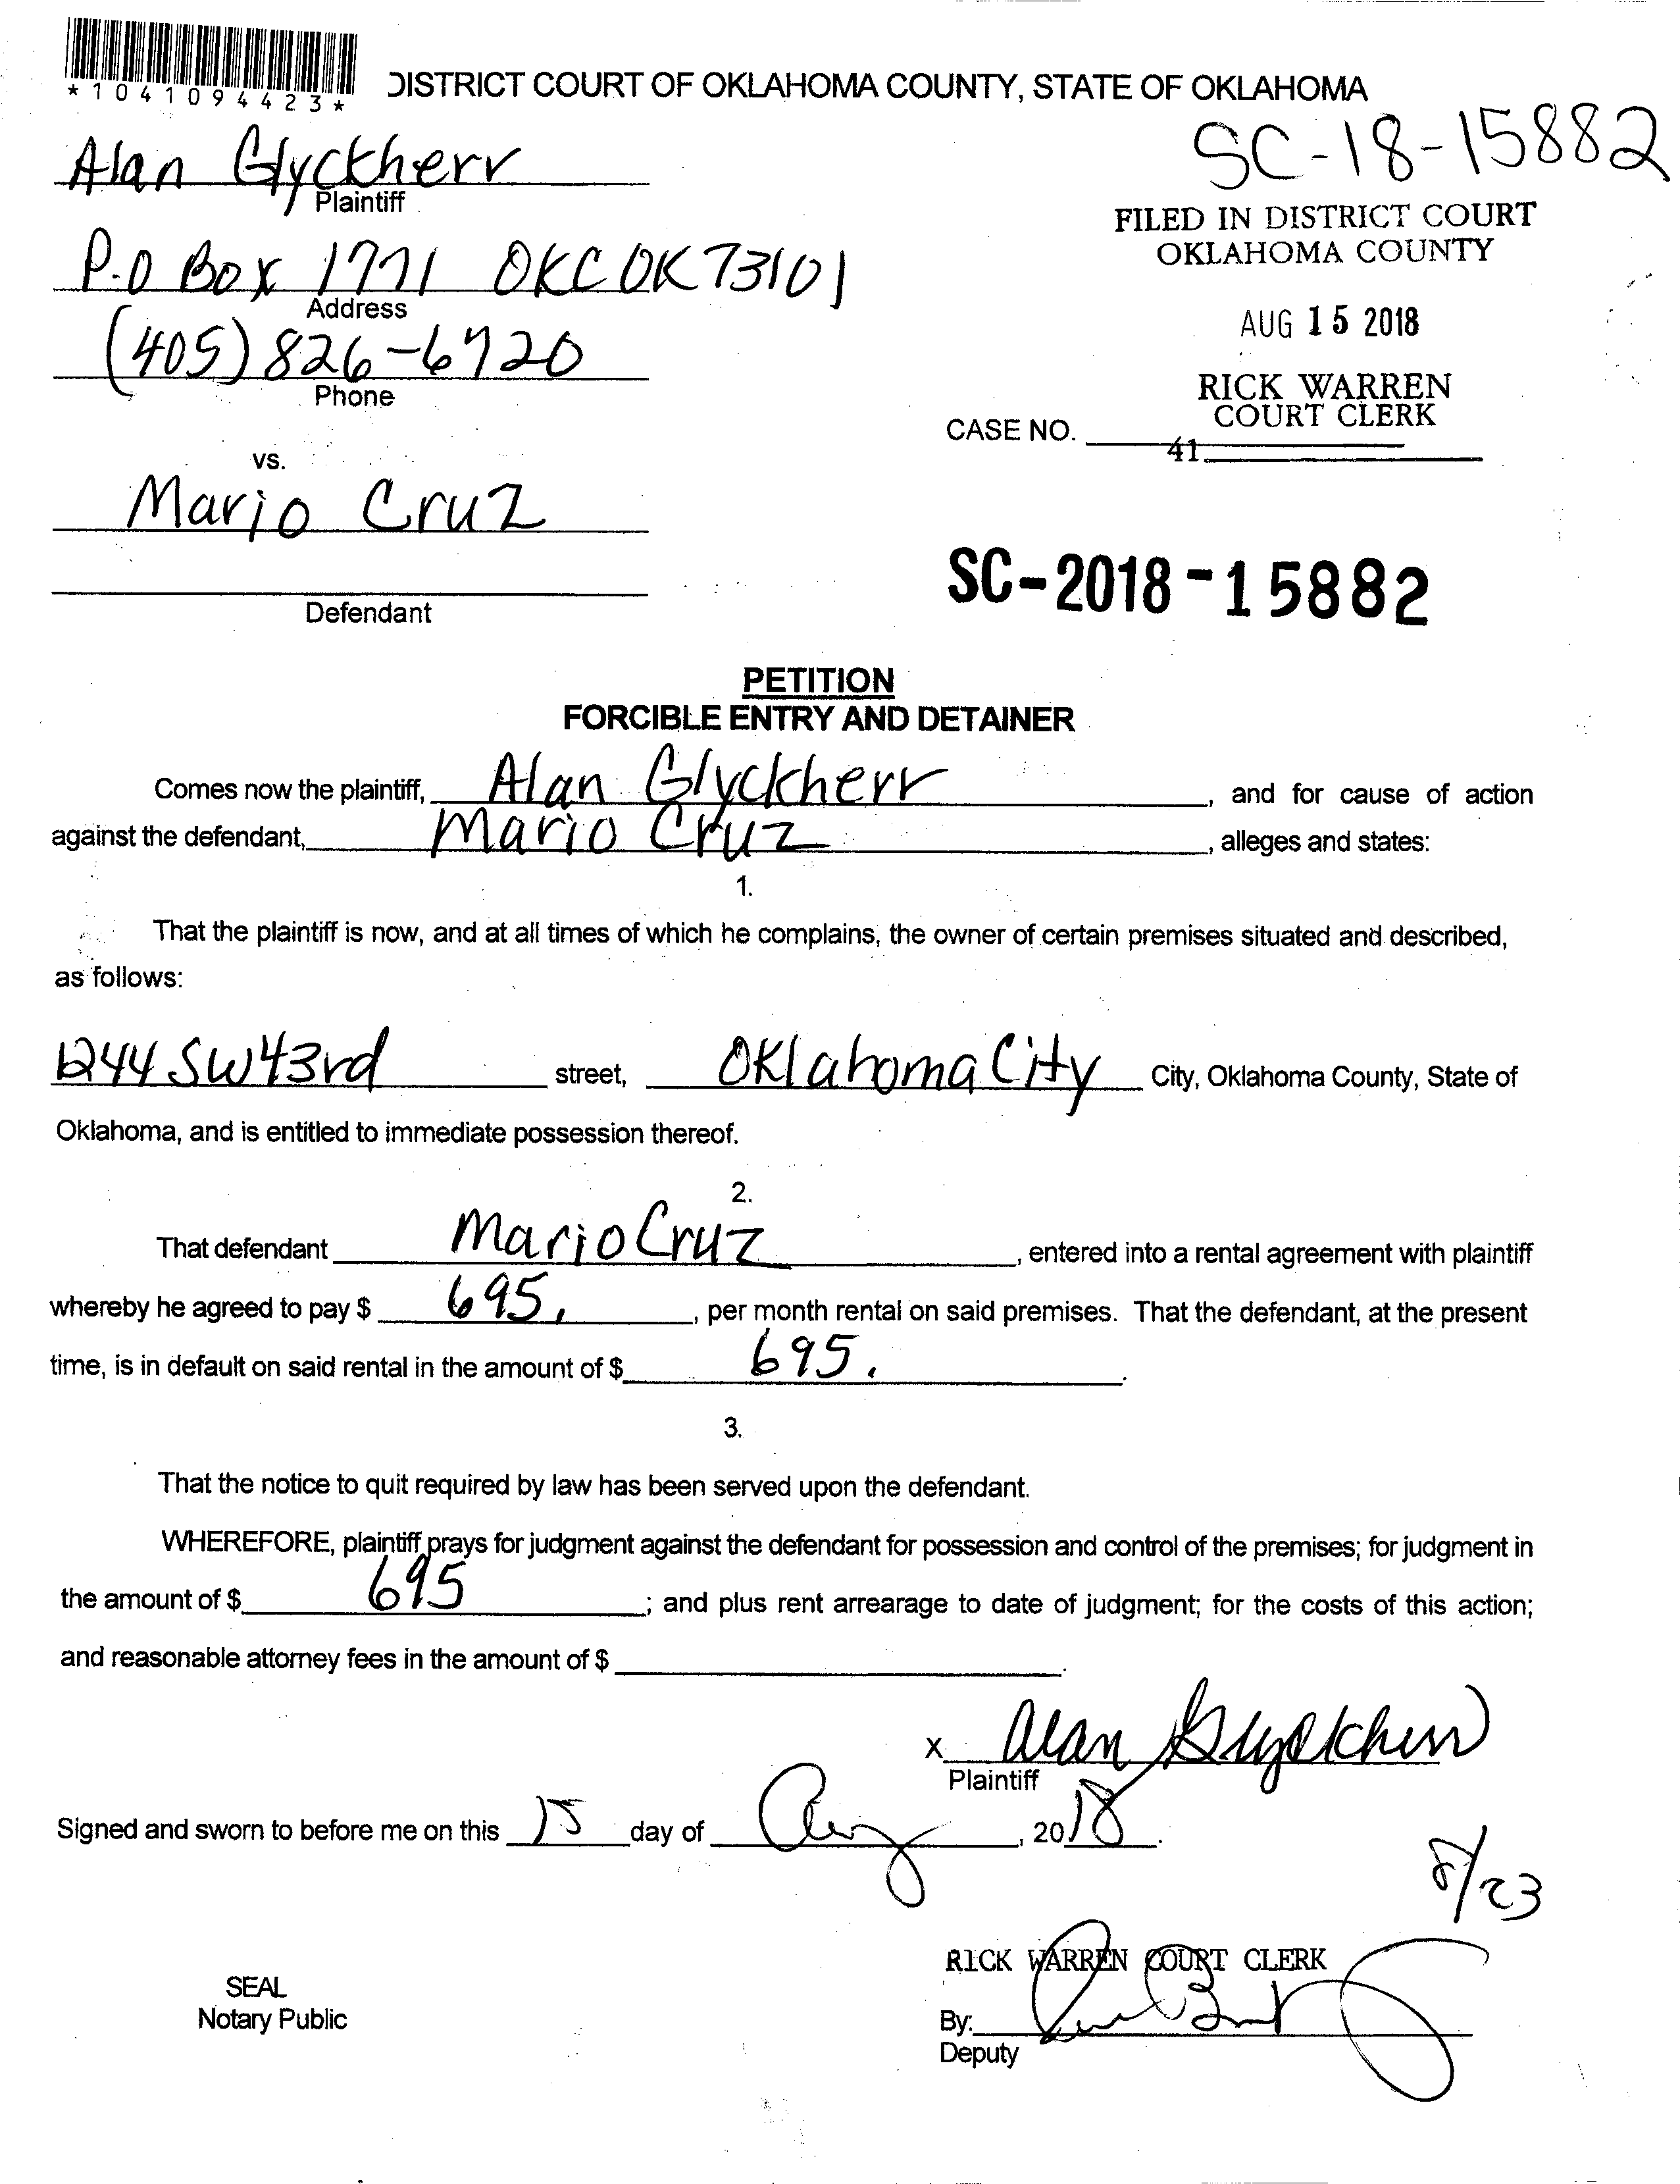 *1041094423*
DISTRICT COURT OF OKLAHOMA COUNTY, STATE OF OKLAHOMA
SC-18-15882
Alan Glyckherr
Plaintiff
FILED IN DISTRICT COURT
OKLAHOMA COUNTY
P.O Box 1771 OKC OK 73101
Address
AUG 15 2018
(405) 826-6720
Phone
RICK WARREN
COURT CLERK
CASE NO.
41
vs.
Mario Cruz
Defendant
SC-2018-15882
PETITION
FORCIBLE ENTRY AND DETAINER
Comes now the plaintiff, Alan Glyckherr, and for cause of action
against the defendant, Mario Cruz, alleges and states:
1.
That the plaintiff is now, and at all times of which he complains, the owner of certain premises situated and described,
as follows:
1244 SW 43rd street, Oklahoma City City, Oklahoma County, State of
Oklahoma, and is entitled to immediate possession thereof.
2.
That defendant Mario Cruz, entered into a rental agreement with plaintiff
whereby he agreed to pay $ 695., per month rental on said premises. That the defendant, at the present
time, is in default on said rental in the amount of $ 695..
3.
That the notice to quit required by law has been served upon the defendant.
WHEREFORE, plaintiff prays for judgment against the defendant for possession and control of the premises; for judgment in
the amount of $ 695; and plus rent arrearage to date of judgment; for the costs of this action;
and reasonable attorney fees in the amount of $ .
x Alan Glyckherr
Plaintiff
Signed and sworn to before me on this 15 day of Aug, 2018.
8/23
RICK WARREN COURT CLERK
SEAL
Notary Public
By:
Deputy